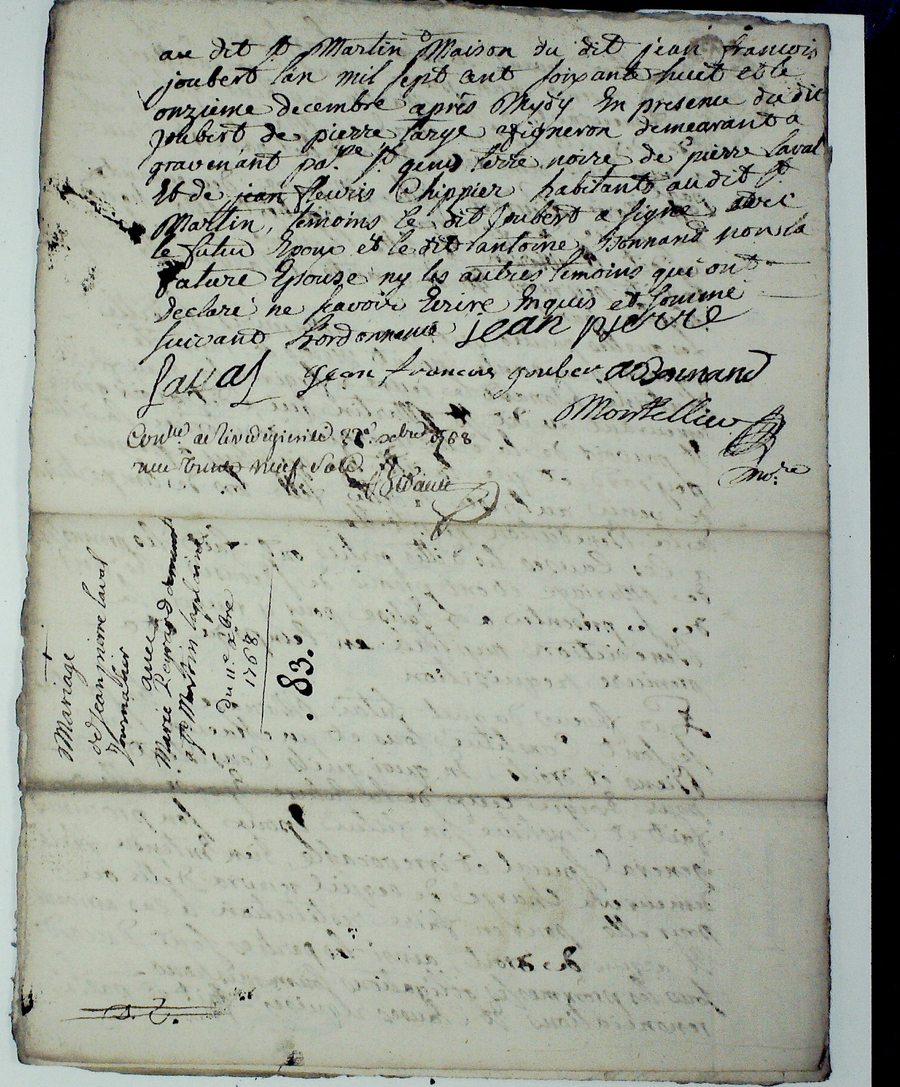 au dit St Martin Maison du dit jean francois
joubert lan mil sept cent soixante huit et le
onzieme decembre après Mydy En presence du dit
Joubert de pierre farge vigneron demeurant a
gravenant parre St genis terre noire de pierre Laval
Et de jean fleuris Chippier habitants au dit St
Martin, temoins le dit Joubert a signé avec
le futur Epoux et le dit antoine Bonnand non la
future Epouse ny les autres temoins qui ont
declaré ne scavoir Ecrire Enquis et sommé
suivant Lordonnance jean pierre
Laval jean francois joubert a Bonnand
Montellier
Conllé a Rivedegier le 22e xbre 1768
neuf sols
nore
Mariage
de Jean pierre laval
avec
Marie
a St Martin la plaine
du 11e xbre
1768
83.